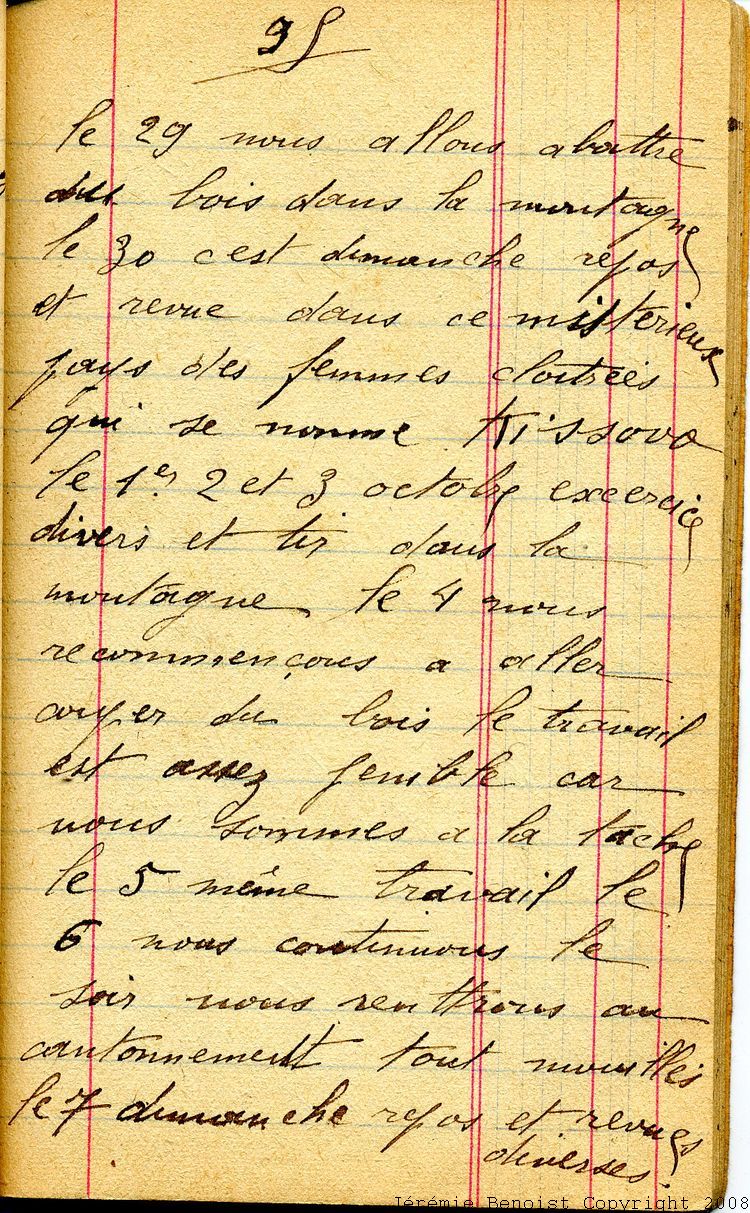 35
le 29 nous allons abattre
du bois dans la montagne
le 30 c'est dimanche repos
et revue dans ce misterieux
pays des femmes cloitrées
qui se nomme Kissova
le 1er 2 et 3 octobre excercice
divers et tir dans la
montagne le 4 nous
recommençons a aller
couper du bois le travail
est assez penible car
nous sommes a la tache
le 5 même travail le
6 nous continuons le
soir nous renttrons au
cantonnement tout mouillés
le 7 dimanche repos et revues
diverses.
Jérémie Benoist Copyright 2008